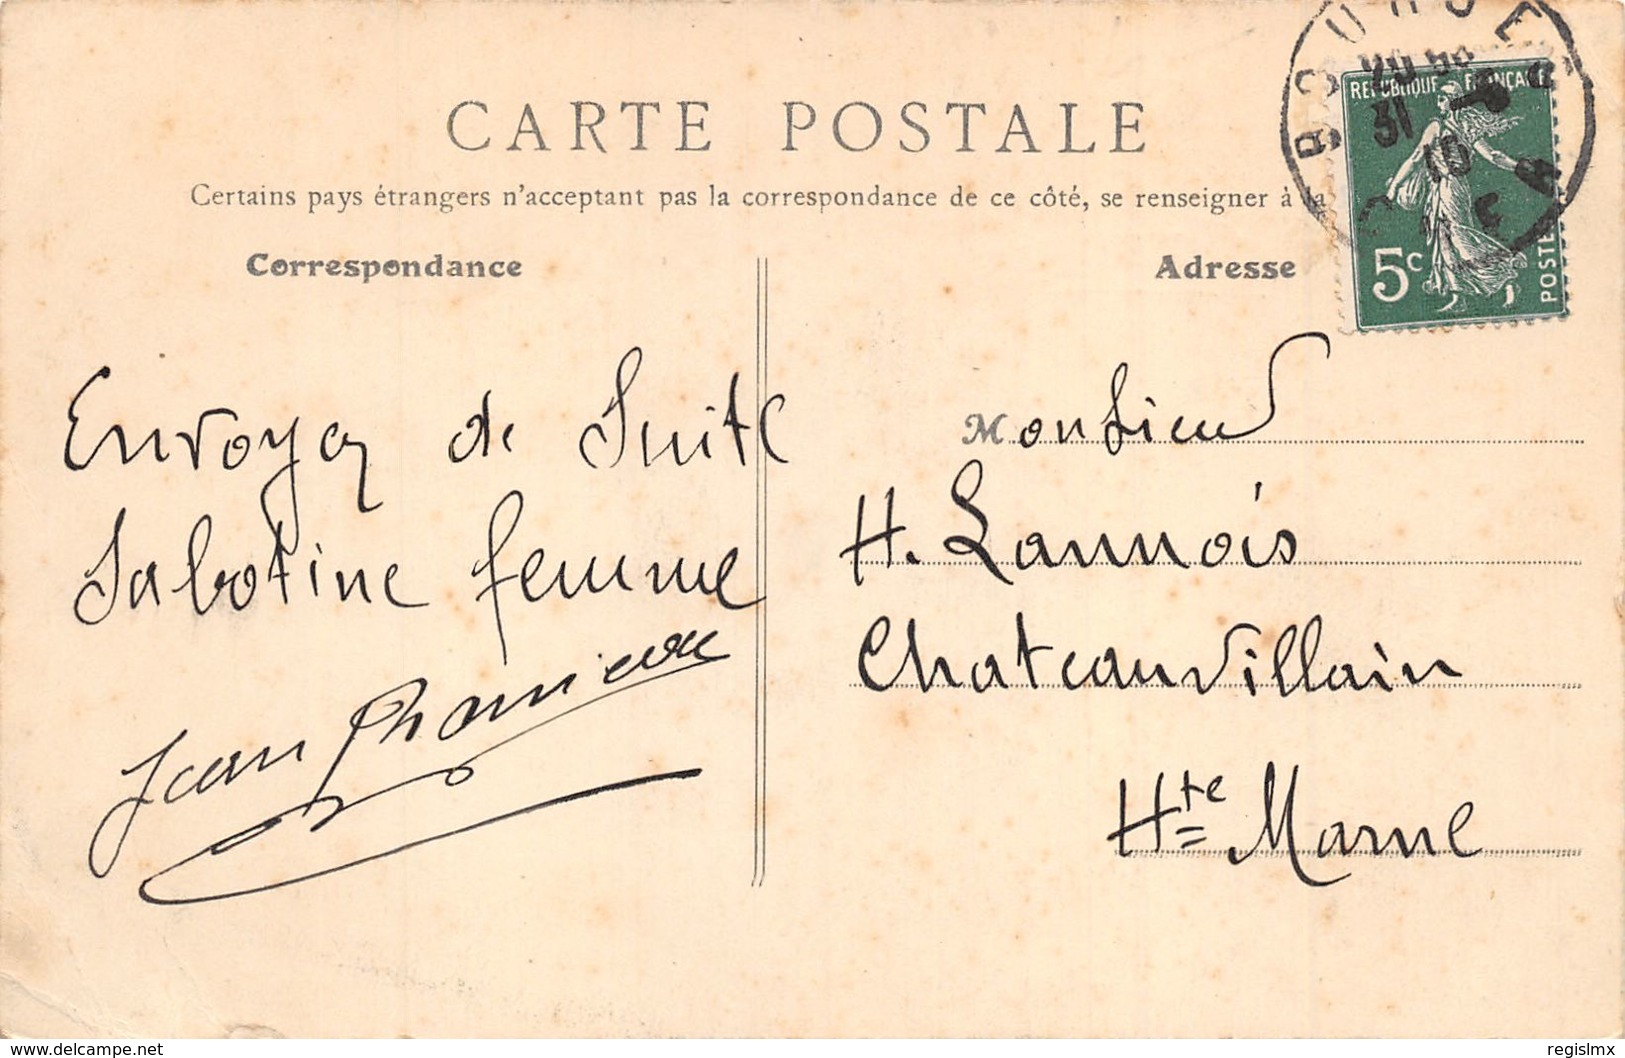 CARTE POSTALE
Certains pays étrangers n'acceptant pas la correspondance de ce côté, se renseigner à la
Correspondance
Adresse
RÉPUBLIQUE FRANÇAISE
5c
POSTES
BOURGES
31
10
CHER
Envoyez de Suite
Sabotine femme
Jean
Monsieur
H. Lannois
Chateauvillain
Hte Marne
www.delcampe.net
regislmx